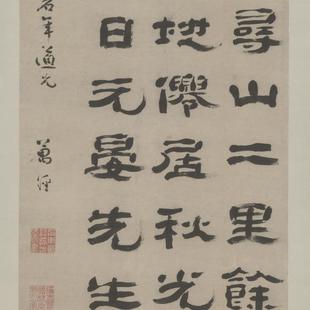 尋山二里餘
地僻居秋光
日元晏先生
年道兄
萬經